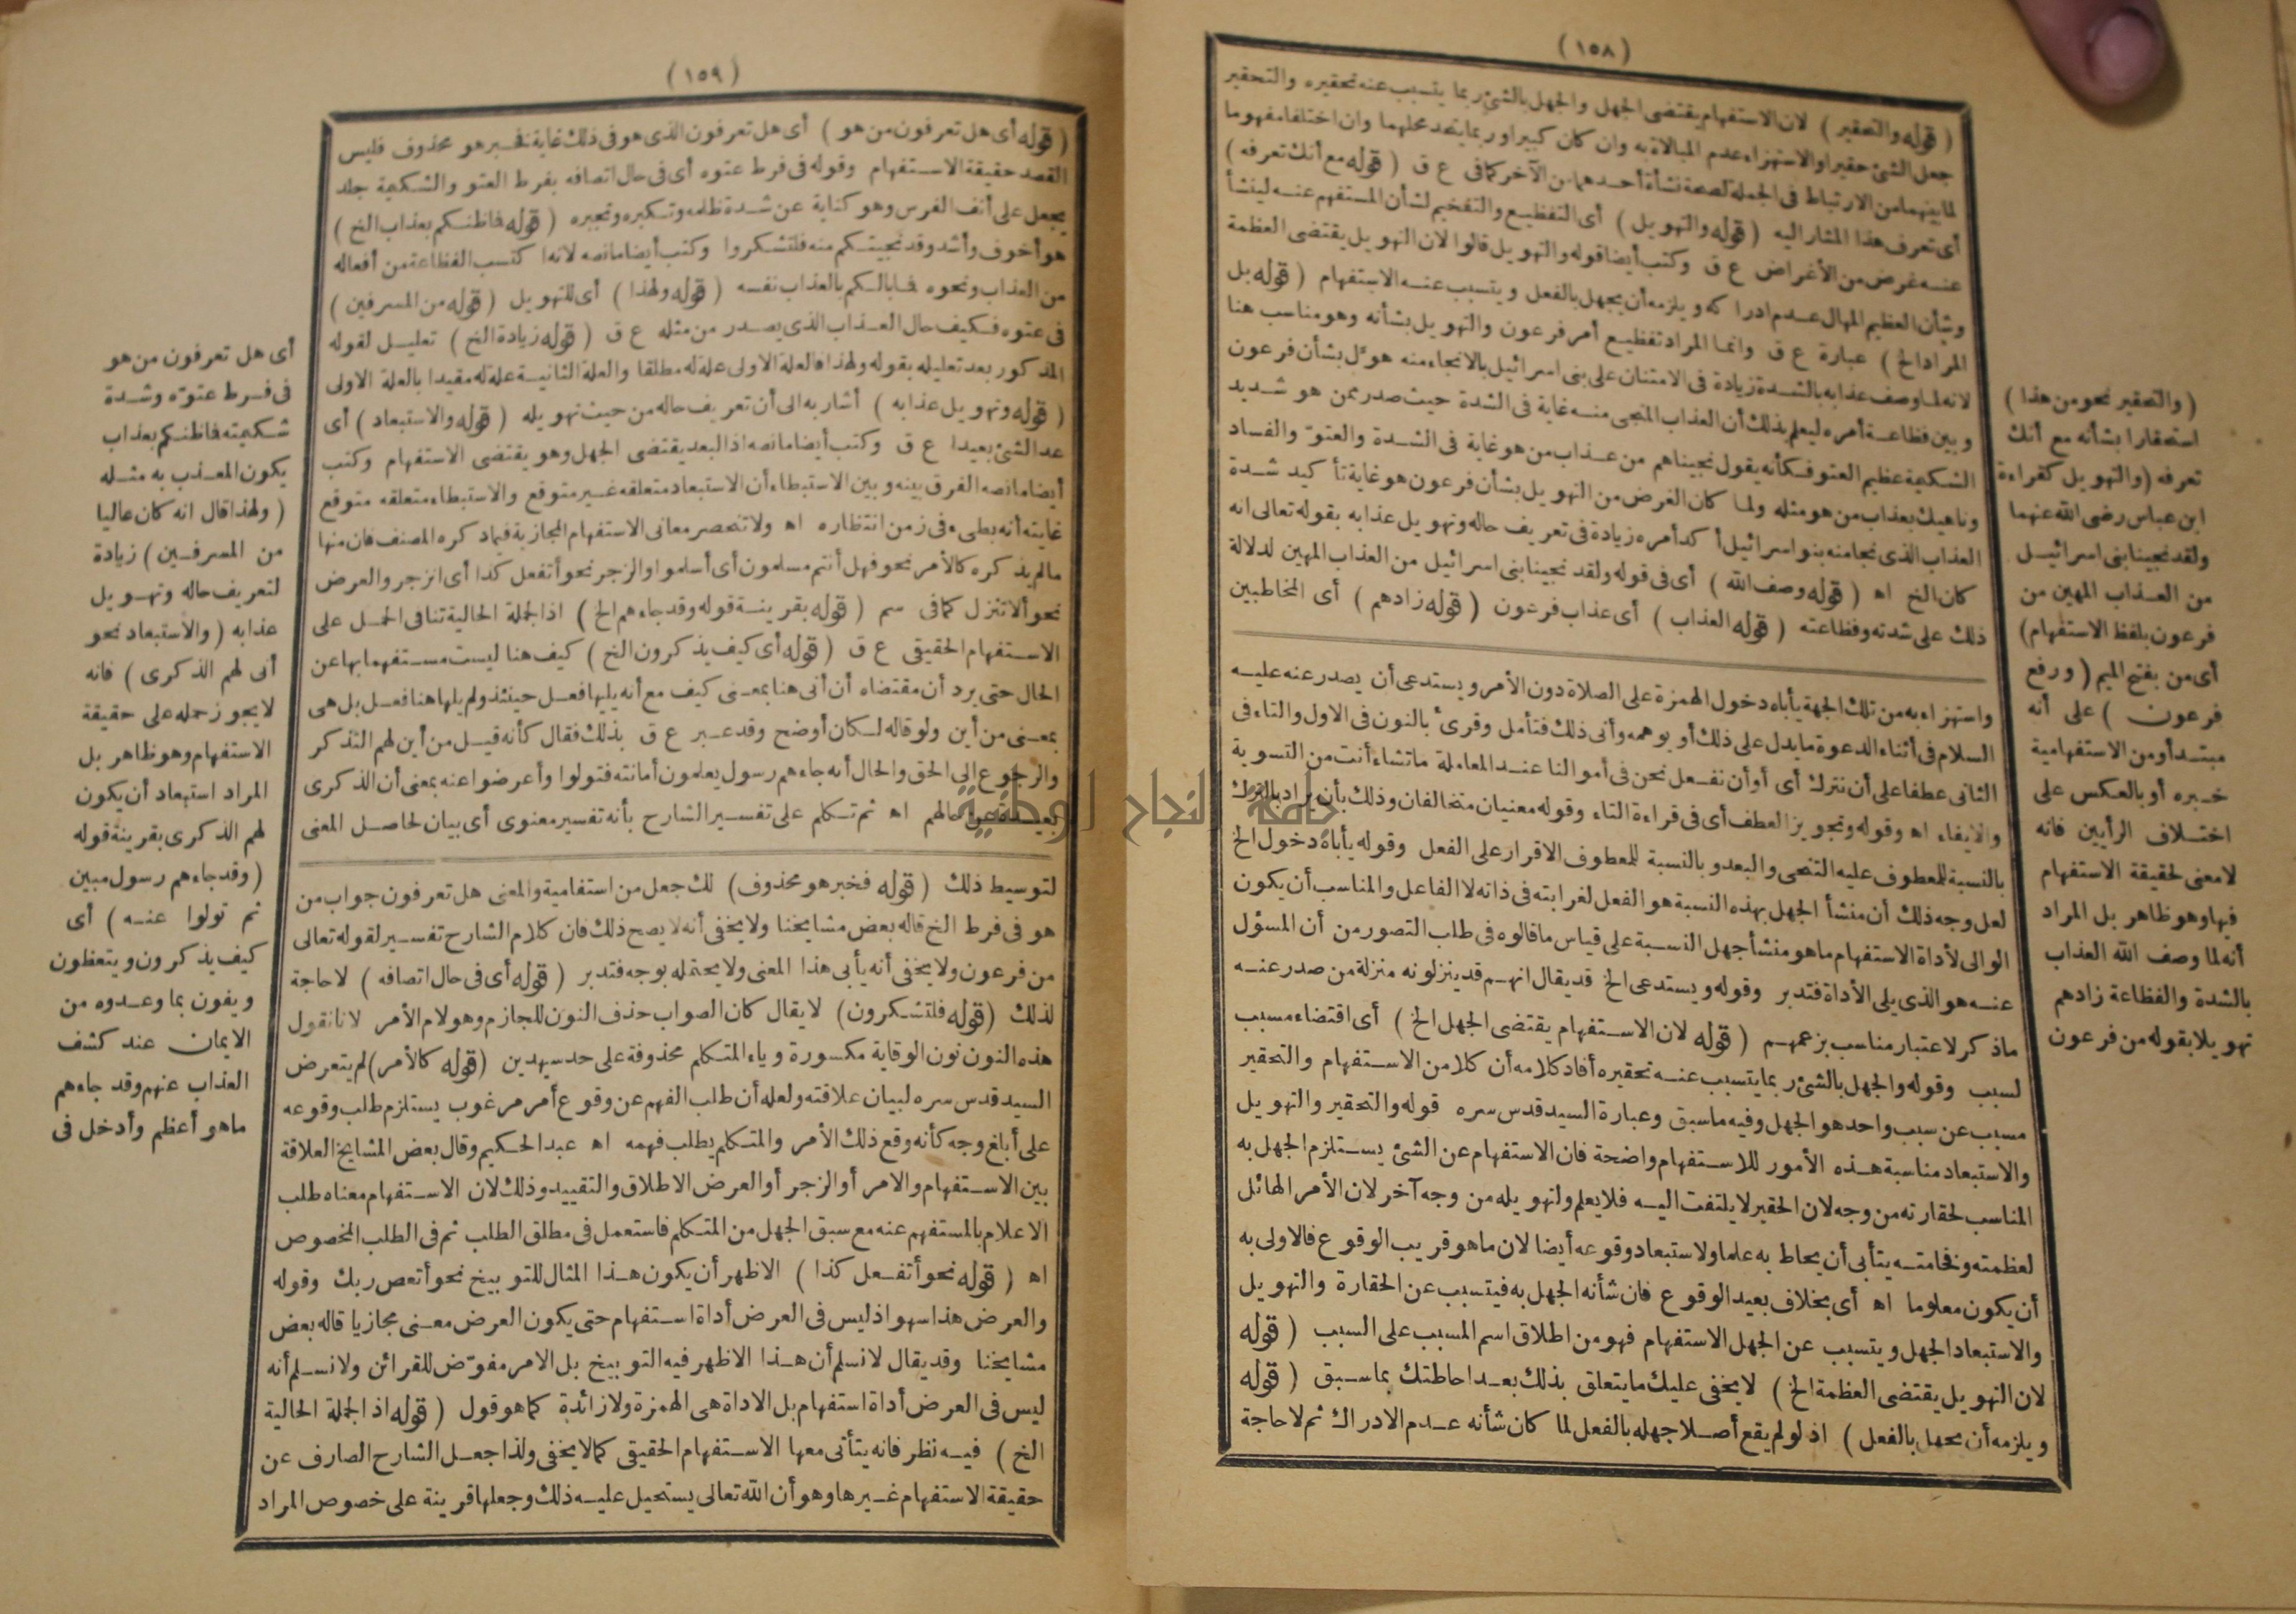 (١٥٨)
(قوله والتحقير) لان الاستفهام يقتضى الجهل والجهل بالشئ ربما يتسبب عنه تحقيره والتحقير
جعل الشئ حقيرا والاستهزاء عدم المبالاة به وان كان كبيرا وربما يتحد محلهما وان اختلفا مفهوما
لما بينهما من الارتباط فى الجملة لصحة نشأة أحدهما من الآخر كما فى ع ق (قوله مع أنك تعرفه)
أى تعرف هذا المشار اليه (قوله والتهويل) أى التفظيع والتفخيم لشأن المستفهم عنه لينشأ
عنه غرض من الأغراض ع ق وكتب أيضا قوله والتهويل قالوا لان التهويل يقتضى العظمة
وشأن العظيم المهال عدم ادراكه ويلزمه أن يجهل بالفعل ويتسبب عنه الاستفهام (قوله بل
المراد الخ) عبارة ع ق وانما المراد تفظيع أمر فرعون والتهويل بشأنه وهو مناسب هنا
لانه لما وصف عذابه بالشدة زيادة فى الامتنان على بنى اسرائيل بالانجاء منه هوّل بشأن فرعون
وبين فظاعة أمره ليعلم بذلك أن العذاب المنجى منه غاية فى الشدة حيث صدر ممن هو شديد
الشكيمة عظيم العتو فكأنه يقول نجيناهم من عذاب من هو غاية فى الشدة والعتوّ والفساد
وناهيك بعذاب من هو مثله ولما كان الغرض من التهويل بشأن فرعون هو غاية تأكيد شدة
العذاب الذى نجا منه بنو اسرائيل أكد أمره زيادة فى تعريف حاله وتهويل عذابه بقوله تعالى انه
كان الخ اه (قوله وصف الله) أى فى قوله ولقد نجينا بنى اسرائيل من العذاب المهين لدلالة
ذلك على شدته وفظاعته (قوله العذاب) أى عذاب فرعون (قوله زادهم) أى المخاطبين
واستهزاء به من تلك الجهة يأباه دخول الهمزة على الصلاة دون الأمر ويستدعى أن يصدر عنه عليه
السلام فى أثناء الدعوة ما يدل على ذلك أو يوهمه وأنى ذلك فتأمل وقرئ بالنون فى الاول والتاء فى
الثانى عطفا على أن نترك أى أو أن نفعل نحن فى أموالنا عند المعاملة ما تشاء أنت من التسوية
والايفاء اه وقوله وتجويز العطف أى فى قراءة التاء وقوله معنيان متخالفان وذلك بأن يراد بالترك
بالنسبة للمعطوف عليه التنحى والبعد وبالنسبة للمعطوف الاقرار على الفعل وقوله يأباه دخول الخ
لعل وجه ذلك أن منشأ الجهل بهذه النسبة هو الفعل لغرابته فى ذاته لا الفاعل والمناسب أن يكون
الوالى لأداة الاستفهام ما هو منشأ جهل النسبة على قياس ما قالوه فى طلب التصور من أن المسؤل
عنه هو الذى يلى الأداة فتدبر وقوله ويستدعى الخ قد يقال انهم قد ينزلونه منزلة من صدر عنه
ما ذكر لاعتبار مناسب بزعمهم (قوله لان الاستفهام يقتضى الجهل الخ) أى اقتضاء مسبب
لسبب وقوله والجهل بالشئ ربما يتسبب عنه تحقيره أفاد كلامه أن كلا من الاستفهام والتحقير
مسبب عن سبب واحد هو الجهل وفيه ما سبق وعبارة السيد قدس سره قوله والتحقير والتهويل
والاستبعاد مناسبة هذه الأمور للاستفهام واضحة فان الاستفهام عن الشئ يستلزم الجهل به
المناسب لحقارته من وجه لان الحقير لا يلتفت اليه فلا يعلم ولتهويله من وجه آخر لان الأمر الهائل
لعظمته وفخامته يتأبى أن يحاط به علما ولاستبعاد وقوعه أيضا لان ما هو قريب الوقوع فالاولى به
أن يكون معلوما اه أى بخلاف بعيد الوقوع فان شأنه الجهل به فيتسبب عن الحقارة والتهويل
والاستبعاد الجهل ويتسبب عن الجهل الاستفهام فهو من اطلاق اسم المسبب على السبب (قوله
لان التهويل يقتضى العظمة الخ) لا يخفى عليك ما يتعلق بذلك بعد احاطتك بما سبق (قوله
ويلزمه أن يجهل بالفعل) اذ لو لم يقع أصلا جهله بالفعل لما كان شأنه عدم الادراك ثم لا حاجة
(والتحقير نحو من هذا)
استحقارا بشأنه مع أنك
تعرفه (والتهويل كقراءة
ابن عباس رضى الله عنهما
ولقد نجينا بنى اسرائيل
من العذاب المهين من
فرعون بلفظ الاستفهام)
أى من بفتح الميم (ورفع
فرعون) على أنه
مبتدأ ومن الاستفهامية
خبره أو بالعكس على
اختلاف الرأيين فانه
لا معنى لحقيقة الاستفهام
فيها وهو ظاهر بل المراد
أنه لما وصف الله العذاب
بالشدة والفظاعة زادهم
تهويلا بقوله من فرعون
(١٥٩)
(قوله أى هل تعرفون من هو) أى هل تعرفون الذى هو فى ذلك غاية فخبر هو محذوف فليس
القصد حقيقة الاستفهام وقوله فى فرط عتوه أى فى حال اتصافه بفرط العتو والشكيمة جلد
يجعل على أنف الفرس وهو كناية عن شدة ظلمه وتكبره وتجبره (قوله فاظنكم بعذاب الخ)
هو أخوف وأشد وقد نجيتكم منه فلتشكروا وكتب أيضا ما نصه لانه اكتسب الفظاعة من أفعاله
من العذاب ونحوه فما بالكم بالعذاب نفسه (قوله ولهذا) أى للتهويل (قوله من المسرفين)
فى عتوه فكيف حال العذاب الذى يصدر من مثله ع ق (قوله زيادة الخ) تعليل لقوله
المذكور بعد تعليله بقوله ولهذا فالعلة الاولى علة له مطلقا والعلة الثانية علة له مقيدا بالعلة الاولى
(قوله وتهويل عذابه) أشار به الى أن تعريف حاله من حيث تهويله (قوله والاستبعاد) أى
عد الشئ بعيدا ع ق وكتب أيضا ما نصه اذ البعد يقتضى الجهل وهو يقتضى الاستفهام وكتب
أيضا ما نصه الفرق بينه وبين الاستبطاء أن الاستبعاد متعلقه غير متوقع والاستبطاء متعلقه متوقع
غايته أنه بطىء فى زمن انتظاره اه ولا تنحصر معانى الاستفهام المجازية فيما ذكره المصنف فان منها
مالم يذكره كالأمر نحو فهل أنتم مسلمون أى أسلموا والزجر نحو أتفعل كذا أى انزجر والعرض
نحو ألا تنزل كما فى سم (قوله بقرينة قوله وقد جاءهم الخ) اذ الجملة الحالية تنافى الحمل على
الاستفهام الحقيقى ع ق (قوله أى كيف يذكرون الخ) كيف هنا ليست مستفهما بها عن
الحال حتى يرد أن مقتضاه أن أنى هنا بمعنى كيف مع أنه يليها فعل حينئذ ولم يلها هنا فعل بل هى
بمعنى من أين ولو قاله لكان أوضح وقد عبر ع ق بذلك فقال كأنه قيل من أين لهم التذكر
والرجوع الى الحق والحال أنه جاءهم رسول يعلمون أمانته فتولوا وأعرضوا عنه بمعنى أن الذكرى
بعيدة عن حالهم اه ثم تكلم على تفسير الشارح بأنه تفسير معنوى أى بيان لحاصل المعنى
لتوسيط ذلك (قوله فخبر هو محذوف) لك جعل من استفهامية والمعنى هل تعرفون جواب من
هو فى فرط الخ قاله بعض مشايخنا ولا يخفى أنه لا يصح ذلك فان كلام الشارح تفسير لقوله تعالى
من فرعون ولا يخفى أنه يأبى هذا المعنى ولا يحتمله بوجه فتدبر (قوله أى فى حال اتصافه) لا حاجة
لذلك (قوله فلتشكرون) لا يقال كان الصواب حذف النون للجازم وهو لام الأمر لانا نقول
هذه النون نون الوقاية مكسورة وياء المتكلم محذوفة على حد سيهدين (قوله كالأمر) لم يتعرض
السيد قدس سره لبيان علاقته ولعله أن طلب الفهم عن وقوع أمر مرغوب يستلزم طلب وقوعه
على أبلغ وجه كأنه وقع ذلك الأمر والمتكلم يطلب فهمه اه عبد الحكيم وقال بعض المشايخ العلاقة
بين الاستفهام والامر أو الزجر أو العرض الاطلاق والتقييد وذلك لان الاستفهام معناه طلب
الاعلام بالمستفهم عنه مع سبق الجهل من المتكلم فاستعمل فى مطلق الطلب ثم فى الطلب المخصوص
اه (قوله نحو أتفعل كذا) الاظهر أن يكون هذا المثال للتوبيخ نحو أتعص ربك وقوله
والعرض هذا سهو اذ ليس فى العرض أداة استفهام حتى يكون العرض معنى مجازيا قاله بعض
مشايخنا وقد يقال لا نسلم أن هذا الاظهر فيه التوبيخ بل الامر مفوّض للقرائن ولا نسلم أنه
ليس فى العرض أداة استفهام بل الاداة هى الهمزة ولا زائدة كما هو قول (قوله اذ الجملة الحالية
الخ) فيه نظر فانه يتأتى معها الاستفهام الحقيقى كما لا يخفى ولذا جعل الشارح الصارف عن
حقيقة الاستفهام غيرها وهو أن الله تعالى يستحيل عليه ذلك وجعلها قرينة على خصوص المراد
أى هل تعرفون من هو
فى فرط عتوّه وشدة
شكيمته فاظنكم بعذاب
يكون المعذب به مثله
(ولهذا قال انه كان عاليا
من المسرفين) زيادة
لتعريف حاله وتهويل
عذابه (والاستبعاد نحو
أنى لهم الذكرى) فانه
لا يجوز حمله على حقيقة
الاستفهام وهو ظاهر بل
المراد استبعاد أن يكون
لهم الذكرى بقرينة قوله
(وقد جاءهم رسول مبين
ثم تولوا عنه) أى
كيف يذكرون ويتعظون
ويفون بما وعدوه من
الايمان عند كشف
العذاب عنهم وقد جاءهم
ما هو أعظم وأدخل فى
جامعة النجاح الوطنية